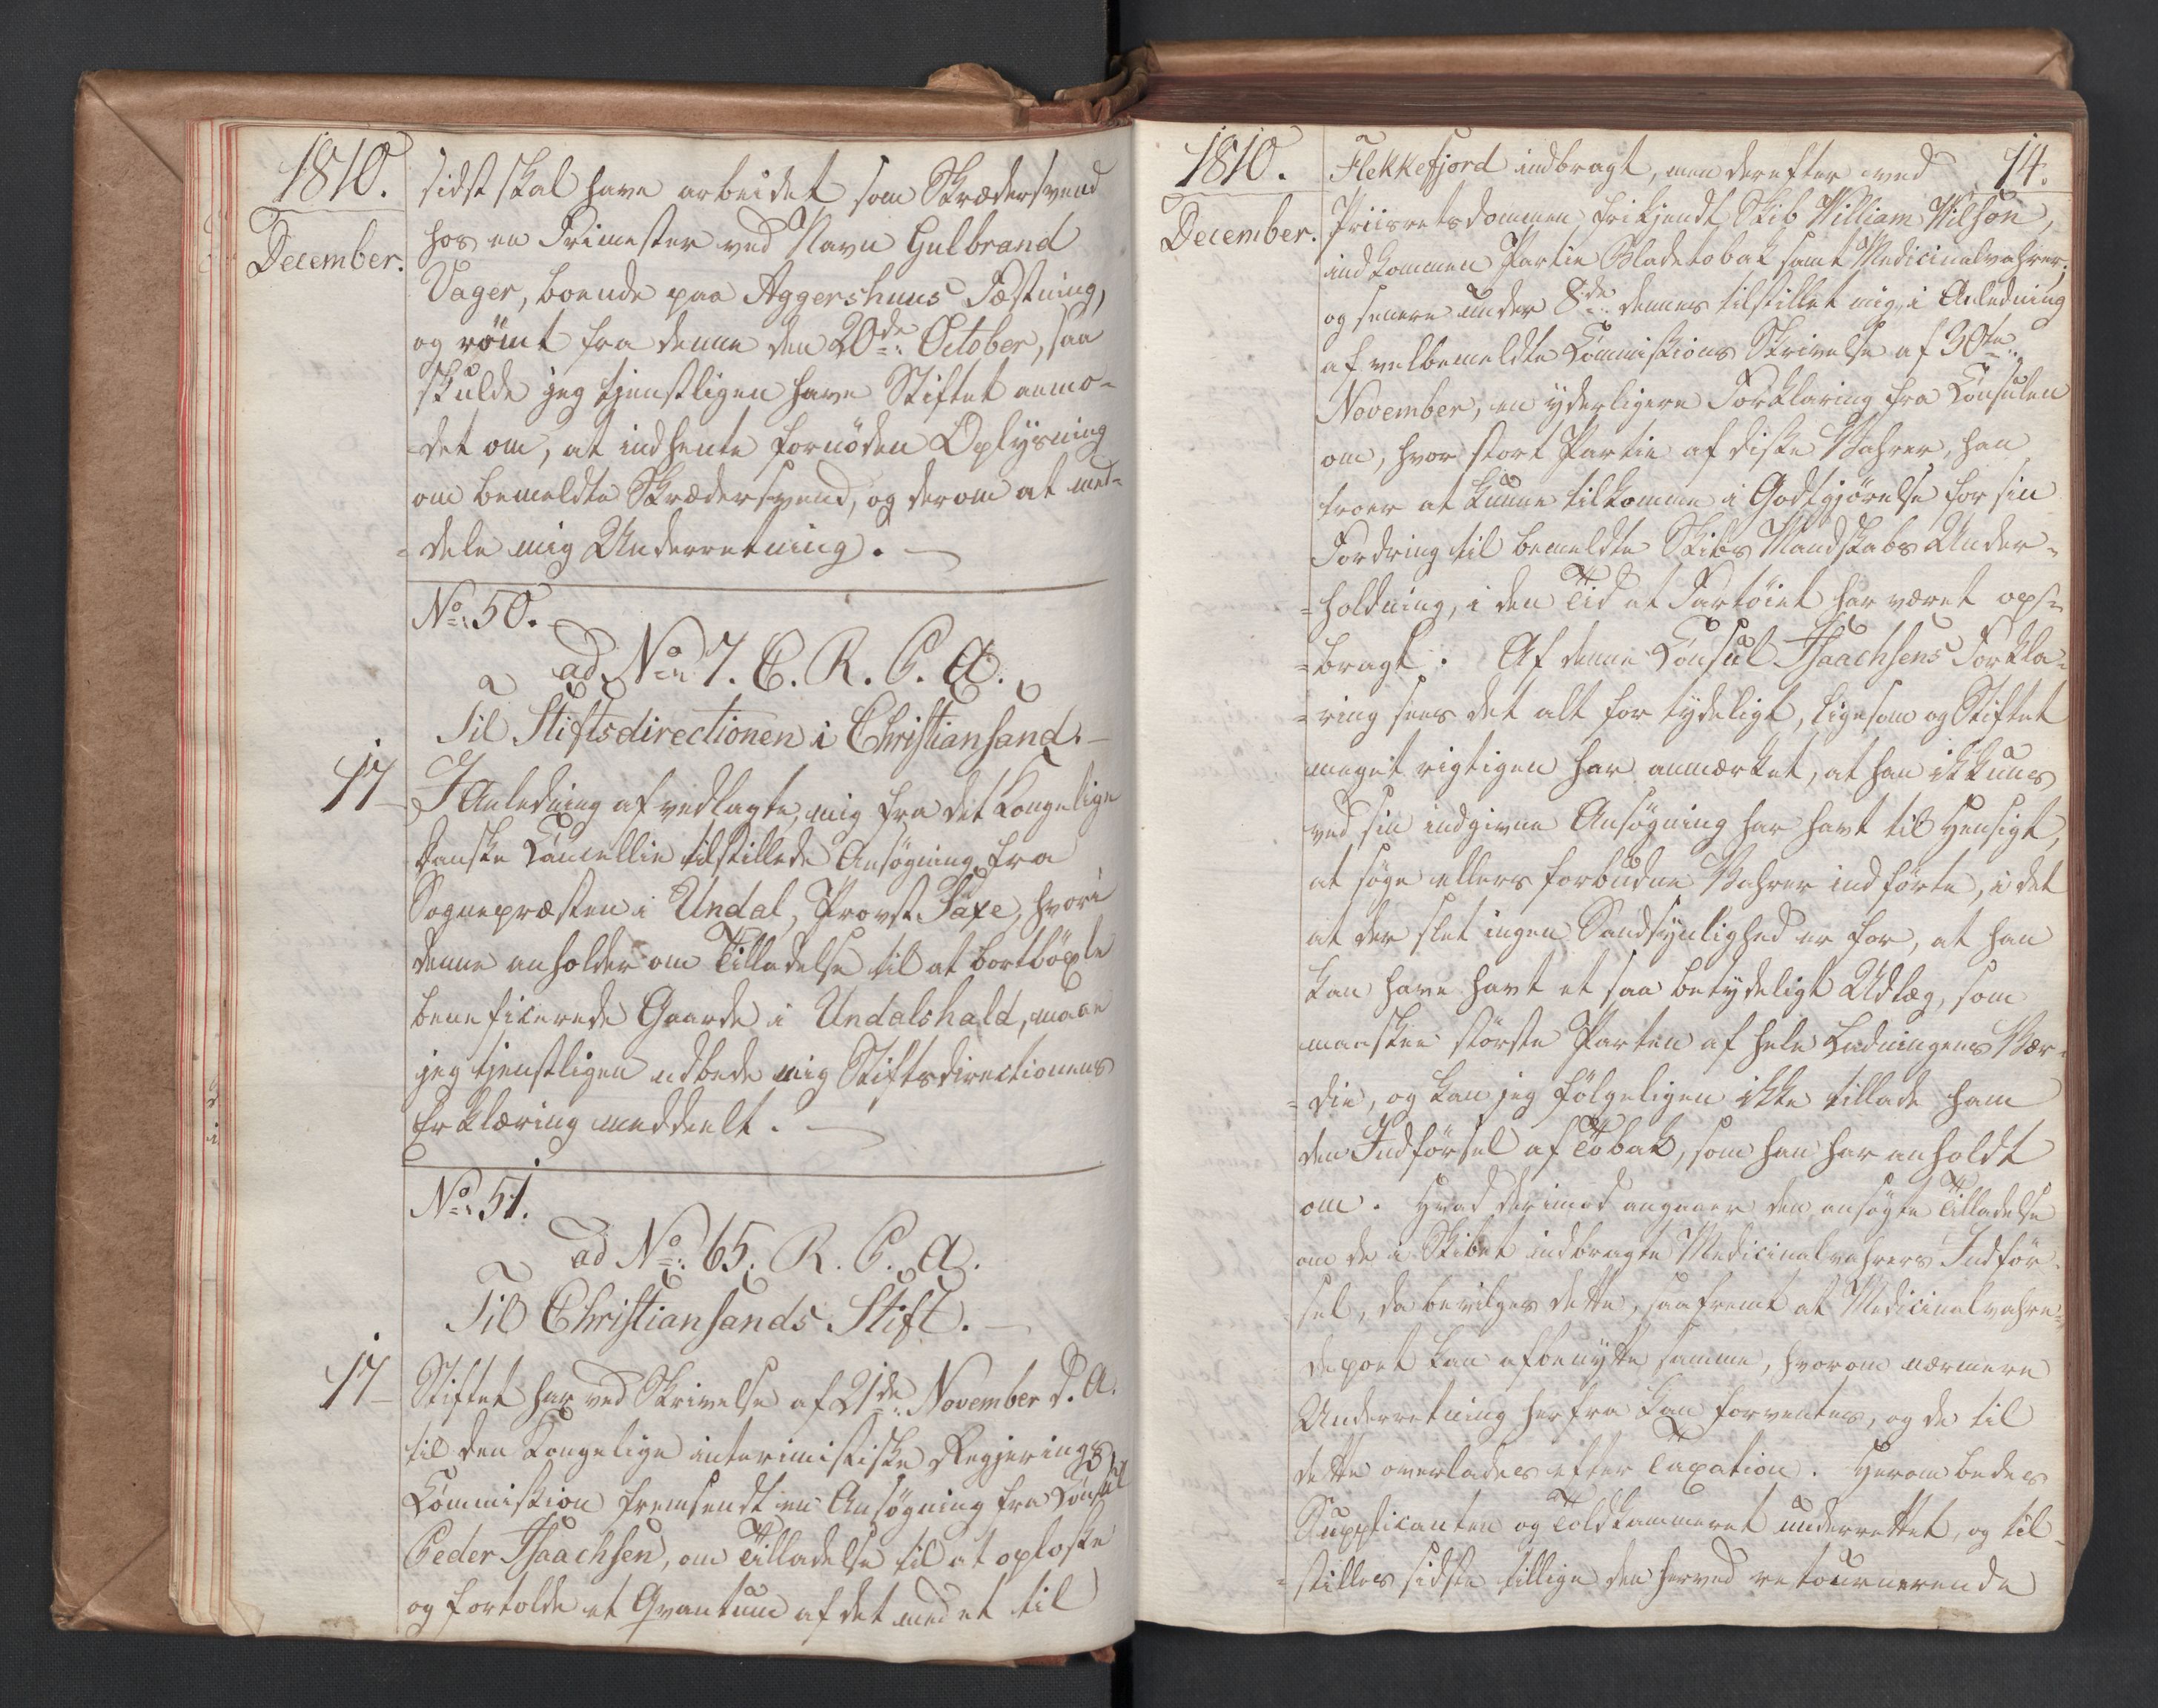 1810.
December.
sidst skal have arbeidet som Skrædersvend
hos en Frimester ved Navn Gulbrand
Vager, boende paa Aggershuus Fæstning,
og rømt fra denne den 20de October, saa
skulde jeg tjenstligen have Stiftet anmo-
-det om, at indhente fornöden Oplysning
om bemeldte Skrædersvend, og derom at med-
-dele mig Underretning.
No. 50.
ad No. 7. C. R. P. A.
Til Stiftsdirectionen i Christiansand.
17
I Anledning af vedlagte, mig fra det Kongelige
danske Cancellie tilstillede Ansøgning fra
Sognepræsten i Undal, Provst Saxe, hvori
denne anholder om Tilladelse til at bortböxle
beneficerede Gaarde i Undalshald, maae
jeg tjenstligen udbede mig Stiftsdirectionens
Erklæring meddeelt.
No. 51.
ad No. 65. R. P. A.
Til Christiansands Stift.
17
Stiftet har ved Skrivelse af 21de November d. A.
til den Kongelige interimistiske Regjerings
Commission fremsendt en Ansøgning fra Consul
Peder Isaachsen, om Tilladelse til at oplosse
og fortolde et Qvantum af det med et til
1810.
December.
14.
Flekkefjord indbragt, men derefter ved
Priisretsdommen frikjendt Skib William Wilson,
indkommen Partie Bladetobak samt Medicinalvahrer;
og senere under 8de dennes tilstillet mig, i Anledning
af velbemeldte Commissions Skrivelse af 30te
November, en yderligere Forklaring fra Consulen
om, hvor stort Partie af disse Vahrer, han
troer at kunne tilkomme i Godtgjörelse for sin
Fordring til bemeldte Skibs Mandskabs Under-
-holdning, i den Tid at Fartöiet har været op-
-bragt. Af denne Consul Isaachsens Forkla-
-ring sees det alt for tydeligt, ligesom og Stiftet
meget rigtigen har anmærket, at han ikkuns
ved sin indgivne Ansögning har havt til Hensigt,
at söge ellers forbudne Vahrer indförte, i det
at der slet ingen Sandsynlighed er for, at han
kan have havt et saa betydeligt Udlæg, som
maaskee störste Parten af hele Ladningens Vær-
-die, og kan jeg fölgeligen ikke tillade ham
den Indförsel af Tobak, som han har anholdt
om. Hvad derimod angaaer den ansögte Tilladelse
om de i Skibet indbragte Medicinalvahrers Indför-
sel, da bevilges dette, saafremt at Medicinalvahre-
depoet kan afbenytte samme, hvorom nærmere
Underretning herfra kan forventes, og de til
dette overlades efter Taxation. Herom bedes
Supplicanten og Toldkammeret underrettet, og til-
-stilles sidste tillige den herved retournerende